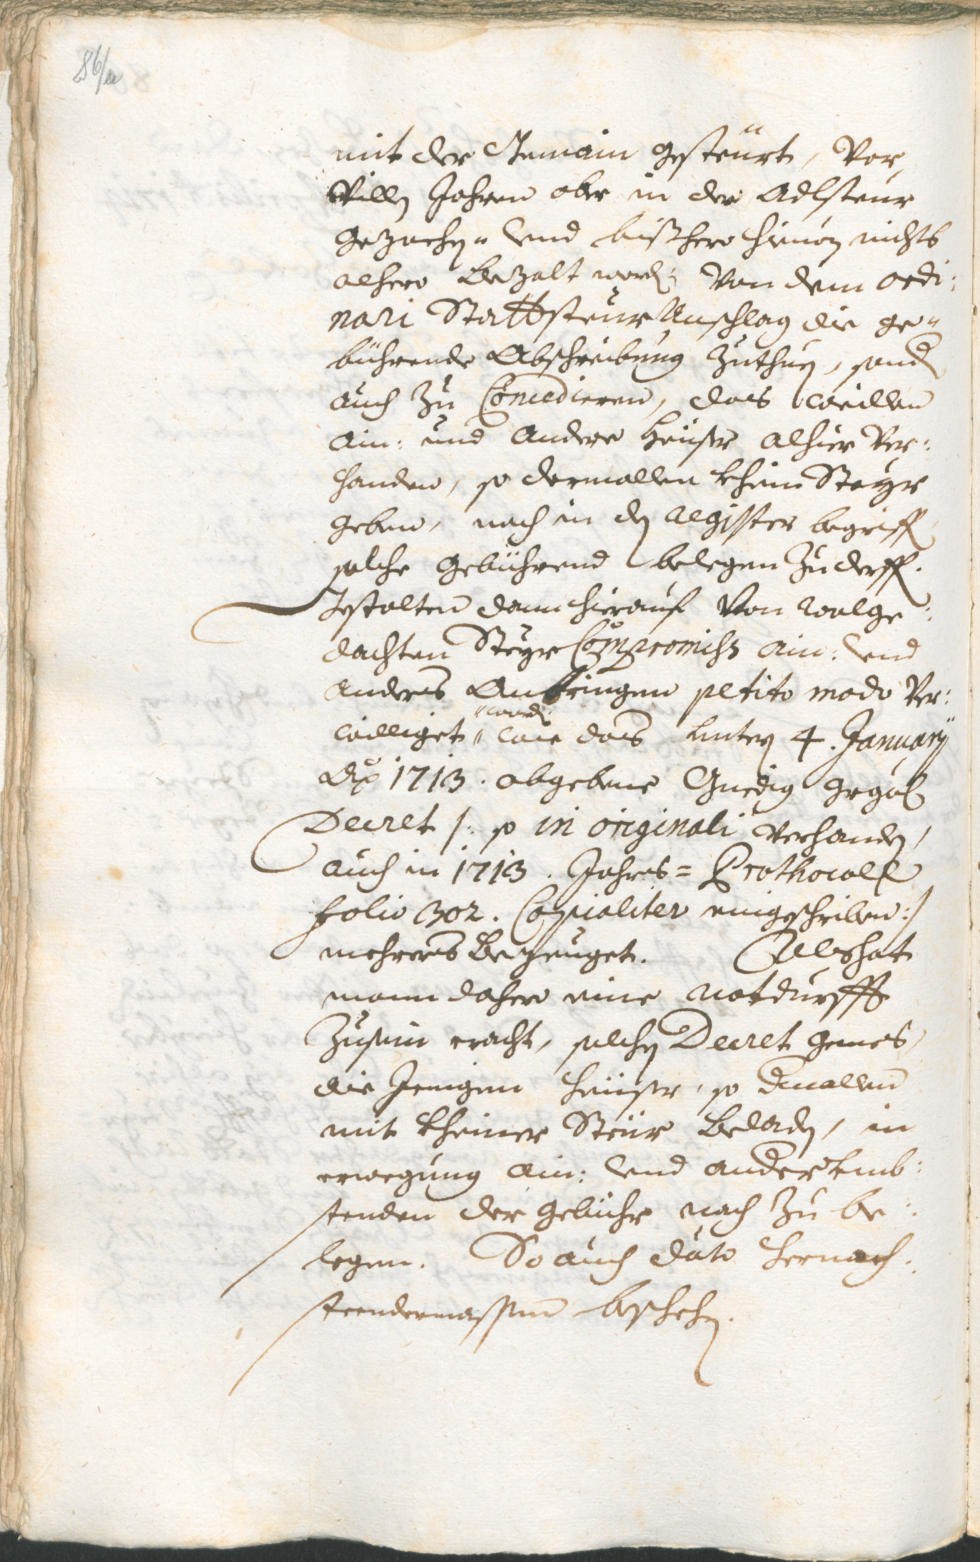 86/a
mit der Gemain gesteurt, Vor
Villen Jahren aber in der Adlsteur
gezochen" und bisthero hievon nichts
alhero bezalt word: Von dem ordi:
nari Stattsteur Anschlag die ge"
bührende Abschreibung zuthuen, sond
auch zu Concedieren, das weillen
ain: und andere heuser alhier Ver:
handen, so dermallen kheine Steyr
geben, noch in den Register begriffen
solche gebührend belegen zu derffen.
Gestalten dann hierauf Von wolge:
dachten Steyr Compromiss ain: und
anders Anbringen petito modo Ver:
williget" word: wie das unterm 4. January
Ao 1713. abgebene Gnedig
Decret /: so in originali Verhanden,
auch in 1713. Jahrs = Prothocoll
folio 302. Copialiter eingeschriben :/
mehrers bezeuget. Alls hat
mann dahero eine notdurfft
zusein eracht, solchen Decret gemes,
die Jenigen heuser, so dermallen
mit kheiner Steur beladen, in
erwegung ain: und andern umb:
stenden der gebühr nach zu be:
legen. So auch dato hernach:
steendermassen beschehen.